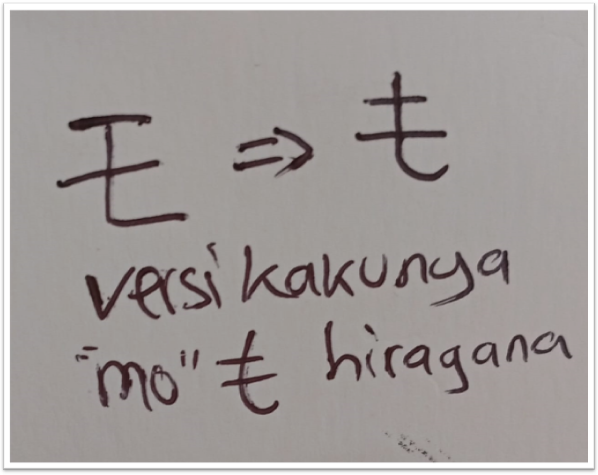 モ ⇒ も
versi kakunya
"mo" も hiragana